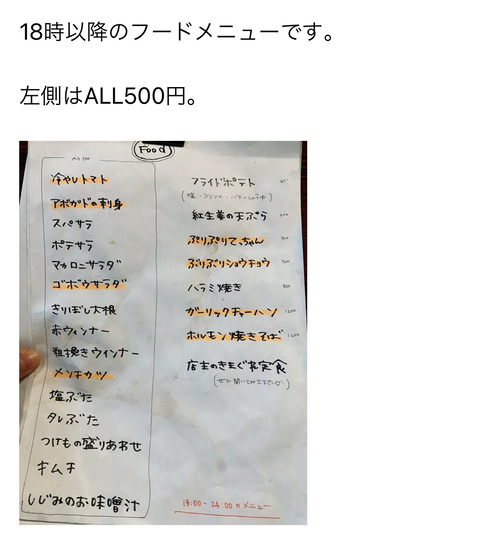 18時以降のフードメニューです。
左側はALL500円。
Food
冷やしトマト
アボガドの刺身
スパサラ
ポテサラ
マカロニサラダ
ゴボウサラダ
きりぼし大根
赤ウィンナー
粗挽きウィンナー
メンチカツ
塩ぶた
タレぶた
つけもの盛りあわせ
キムチ
しじみのお味噌汁
フライドポテト
(塩・コンソメ・バターしょうゆ)
紅生姜の天ぷら
ぷりぷりてっちゃん
ぷりぷりショウチョウ
ハラミ焼き
ガーリックチャーハン
ホルモン焼きそば
店主のきまぐれ定食
(ぜひ聞いてみて下さい)
18:00-24:00のメニュー